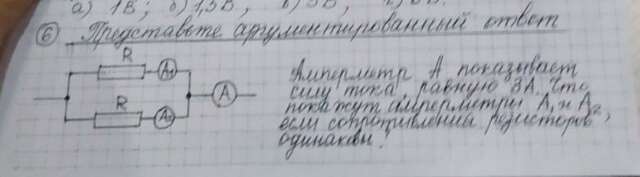 а) 1В; б) 1,5В
⑥ Представьте аргументированный ответ
R A₁
A
R A₂
Амперметр A показывает
силу тока, равную 3А. Что
покажут амперметры A₁ и A₂,
если сопротивления резисторов
одинаковы.